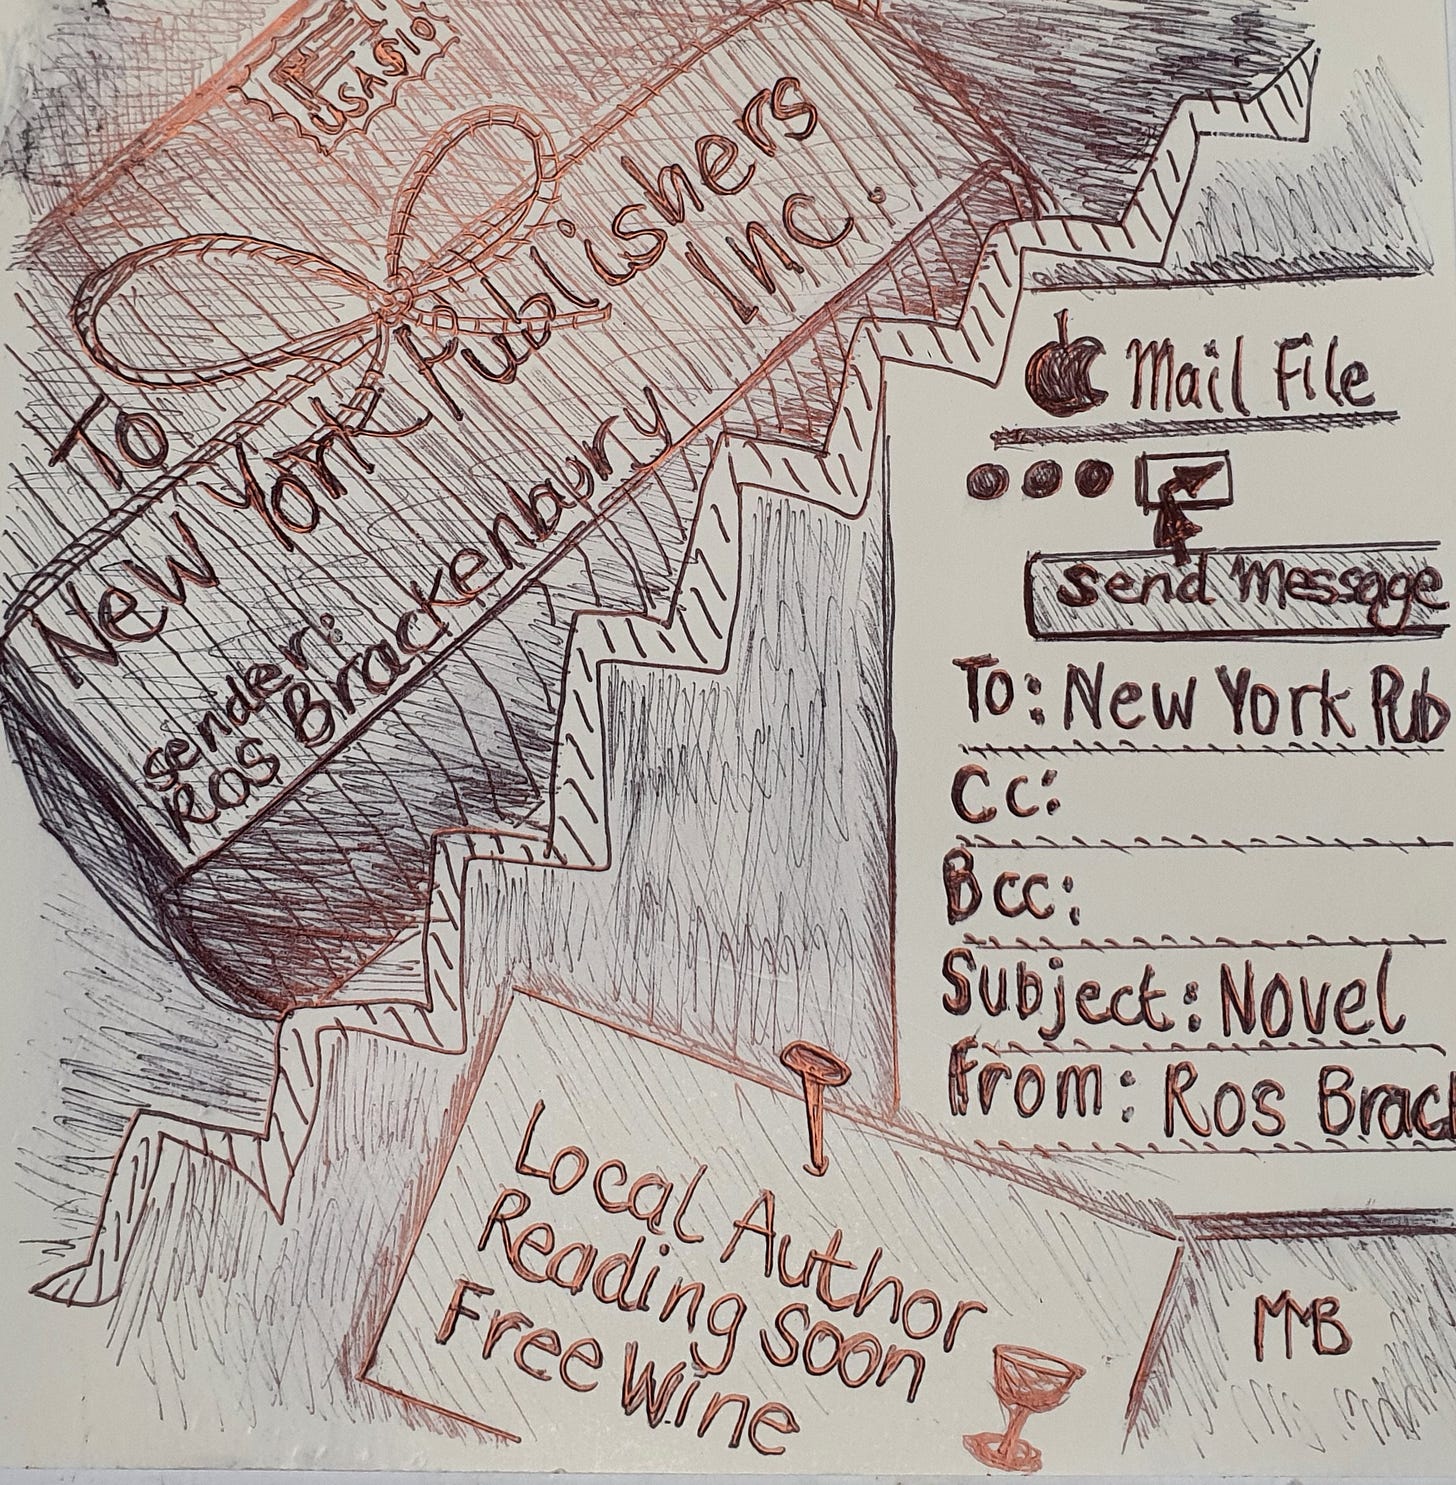 USA $10
To
New York Publishers
Inc.
sender:
Ros Brackenbury
Mail File
send message
To: New York Pub
Cc:
Bcc:
Subject: Novel
From: Ros Brac
Local Author
Reading Soon
Free Wine
MMB